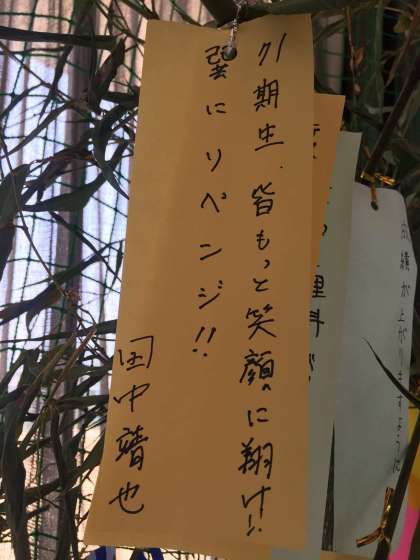 71期生、皆もっと笑顔に翔け!
巽にリベンジ!!
田中靖也
理科が
成績が上がりますように